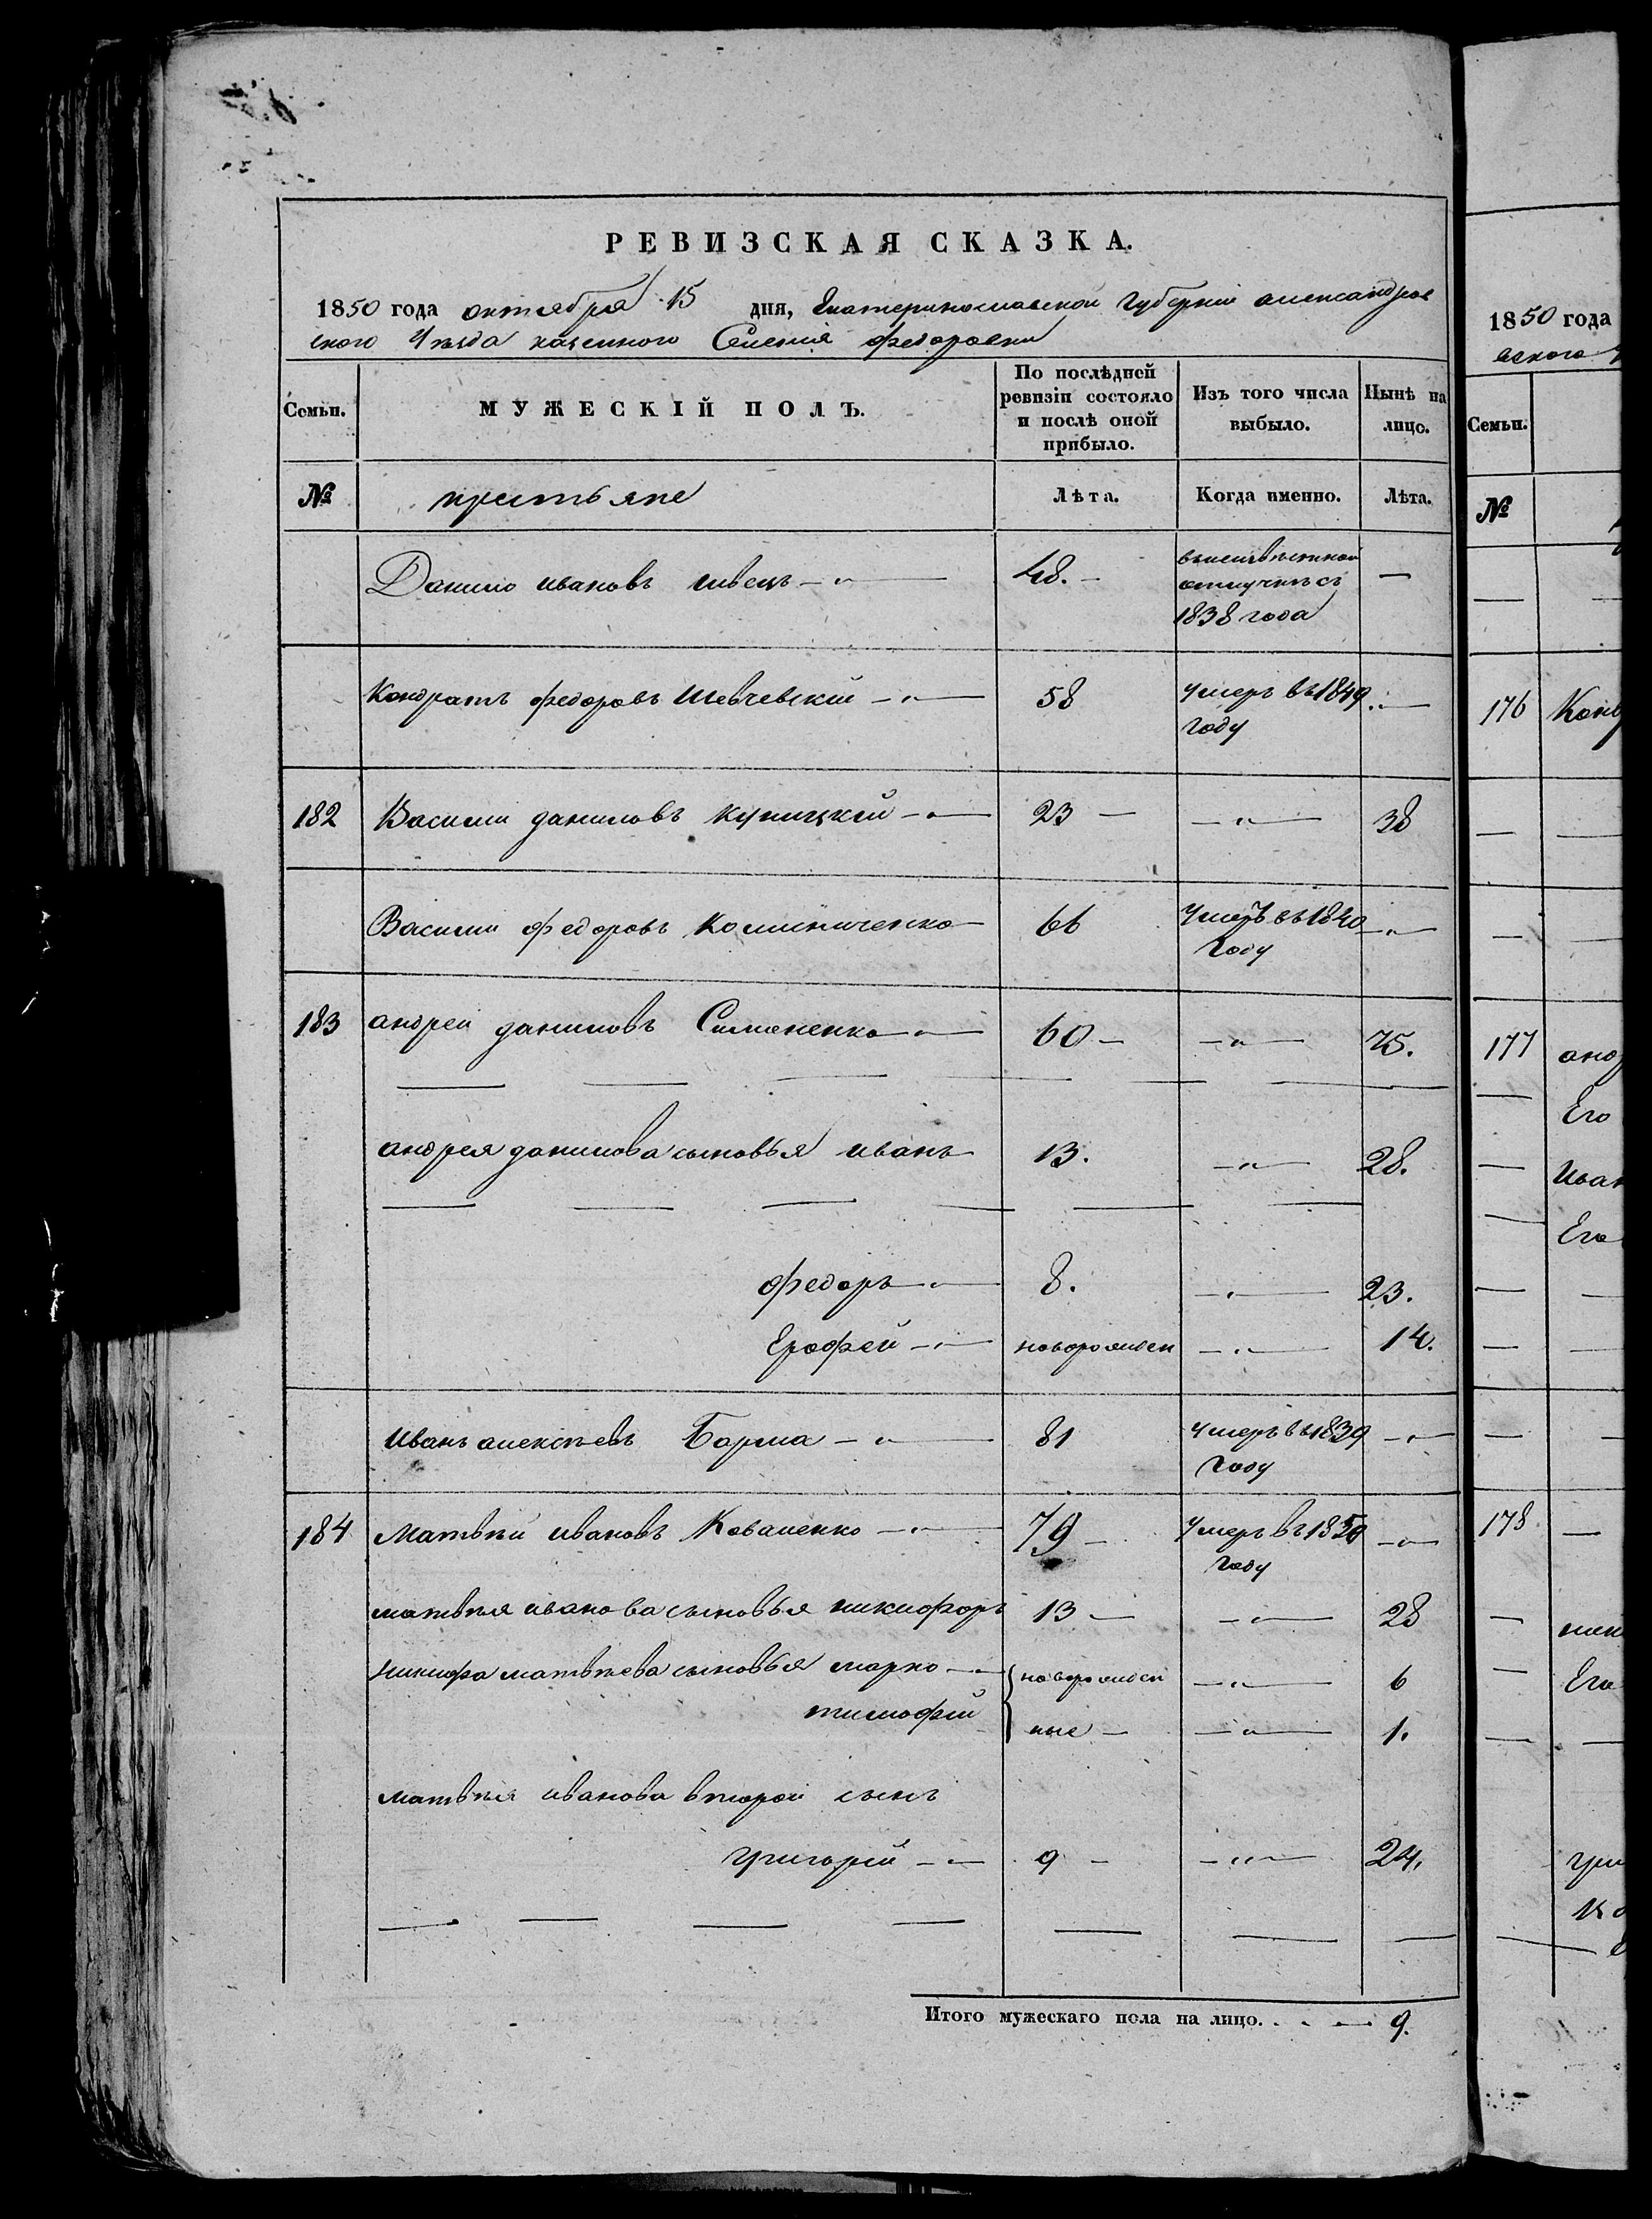 РЕВИЗСКАЯ СКАЗКА.
1850 года октября 15 дня, Екатеринославской Губерніи александров
ского Уѣзда казенного Селенія федоровки
Семьи. МУЖЕСКІЙ ПОЛЪ. По послѣдней ревизіи состояло и послѣ оной прибыло. Изъ того числа выбыло. Нынѣ на лицо.
№ крестьяне Лѣта. Когда именно. Лѣта.
Данило ивановъ швецъ 48. въ неизвѣстной отлучкѣ съ 1838 года
Кондратъ федоровъ Шевчевскій 58 умеръ въ 1849 году
182 Василий даниловъ куницкий 23 38
Василий федоровъ 66 умеръ въ 1840 году
183 андрей даниловъ Симоненко 60 75.
андрея данилова сыновья иванъ 13. 28.
федоръ 8. 23.
Ерофей новорожден 14.
иванъ алексѣевъ Барма 81 умеръ въ 1839 году
184 Матвѣй ивановъ Коваленко 79 умеръ въ 1850 году
матвѣя иванова сыновья никифоръ 13 28
никифра матвѣева сыновья марко новорожден 6
тимофей ные 1.
матвѣя иванова второй сынъ
григорий 9 24.
Итого мужескаго пола на лицо. 9.
1850 года
вского
Семьи.
№
176
177
Его
Его
178
Его